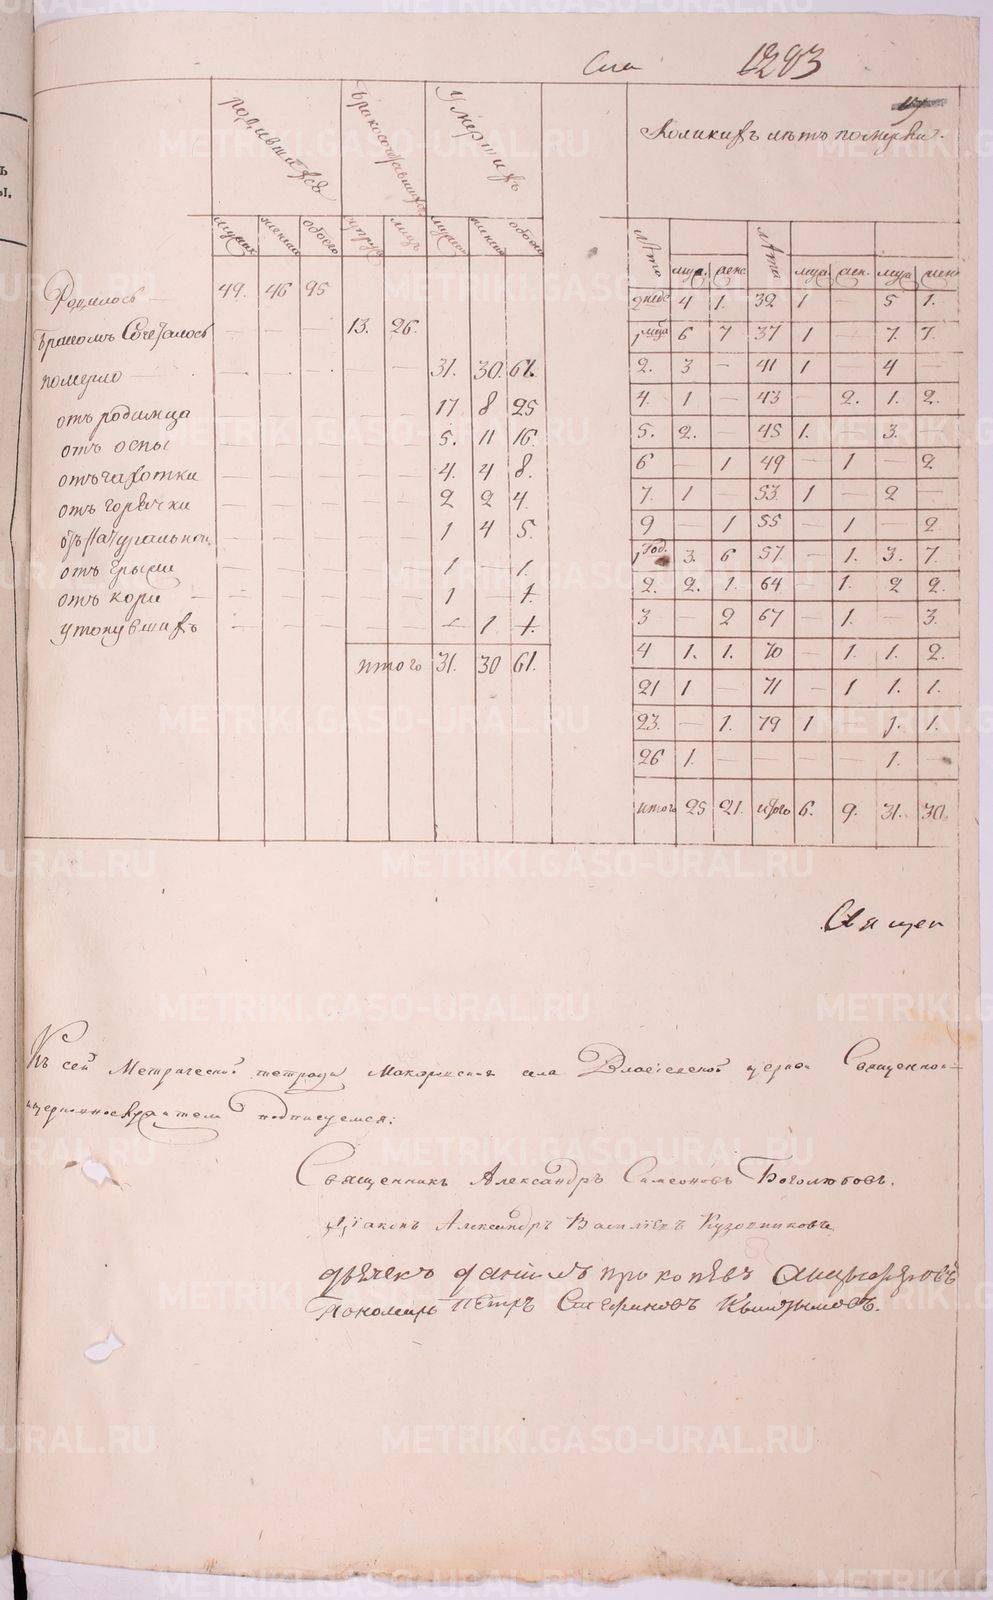 1293
родившихся
бракосочетавшихся
умершихъ
Коликихъ лѣтъ померли.
мужск женск обоего супруг лицъ мужск женск обоего
лѣта муж. женс. лѣта муж. жен. муж женс
Родилось — 49. 46 95
Бракомъ Сочеталось — — — 13. 26.
померло — — — — — 31. 30. 61.
отъ родимца — — — — — 17 8 25
отъ оспы — — — — — 5. 11 16.
отъ чахотки — — — — — 4. 4 8.
отъ горячки — — — — — 2 2 4.
отъ натуральной — — — — — 1 4 5.
отъ грыжи — — — — — 1 — 1.
отъ кори — — — — — 1 — 1.
утонувшихъ — — — — — — 1. 1.
итого 31. 30 61.
2 нед. 4 1. 32 1 5 1.
1 мѣся 6 7 37 1 — 7. 7.
2. 3 — 41 1 — 4
4. 1 — 43 — 2. 1. 2.
5. 2. — 45 1. — 3.
6 — 1 49 — 1 — 2
7. 1 — 53. 1 — 2 —
9 — 1 55 — 1 — 2
1 год. 3. 6 57 — 1. 3. 7.
2. 2. 1. 64 — 1. 2 2.
3 — 2 67 — 1. — 3.
4 1. 1. 70 — 1. 1. 2.
21 1 — 71 — 1 1. 1.
23. — 1. 79 1 1. 1.
26 1. — — — — 1. —
итого 25 21. итого 6. 9. 31. 30.
Священ
Къ сей Метрической тетради Макарьевскаго села Власіевской церкви Священно-
и церковнослужители подписуемся:
Священникъ Александръ Симеоновъ Боголюбовъ.
Діаконъ Александръ Васильевъ Кузовниковъ
дьячекъ даніилъ прокопьевъ
Пономарь Петръ
METRIKI.GASO-URAL.RU